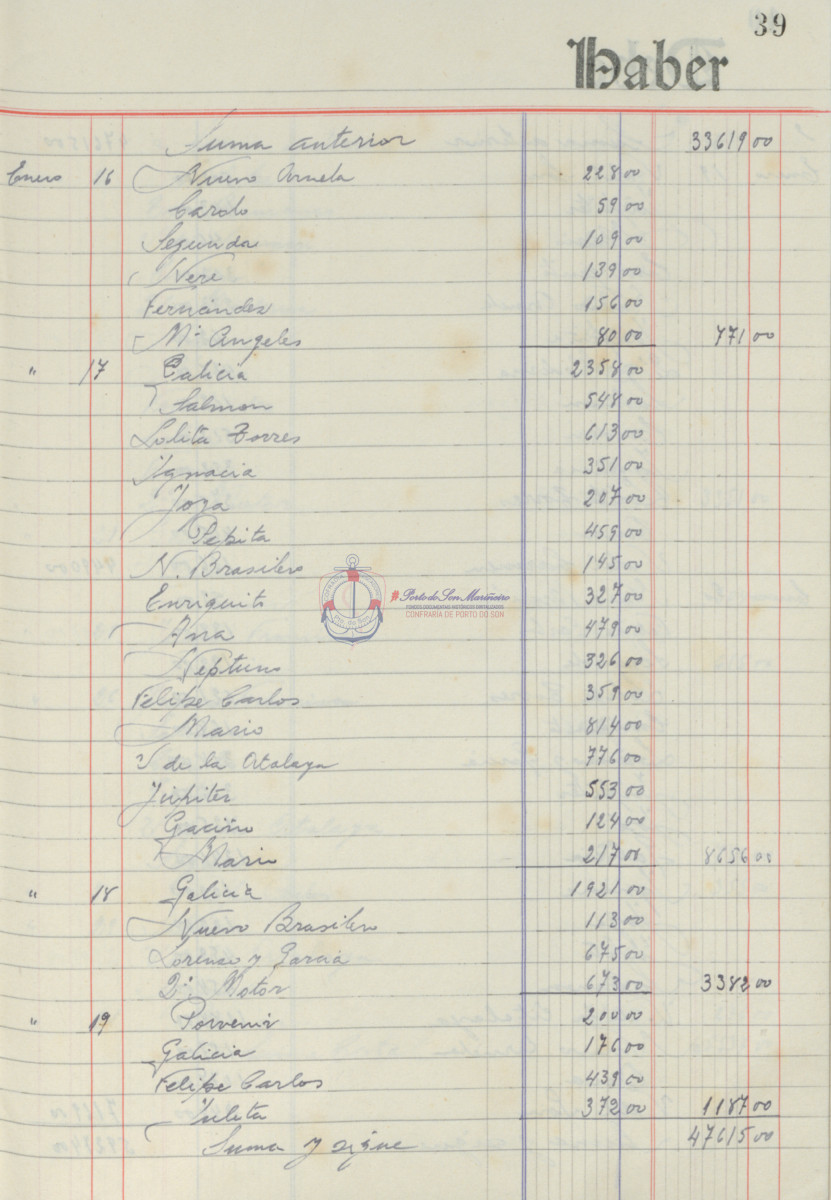 39
Haber
Suma anterior 33619 00
Enero 16 Nuevo Arnela 228 00
Cardo 59 00
Segunda 109 00
Nere 139 00
Fernández 156 00
Mª Angeles 80 00 771 00
" 17 Galicia 2358 00
Salmon 548 00
Lolita Torres 613 00
Ignacia 351 00
Joya 207 00
Pepita 459 00
N. Brasilero 145 00
Enriquito 327 00
Ana 479 00
Neptuno 326 00
Felipe Carlos 359 00
Mario 814 00
V de la Atalaya 776 00
Júpiter 553 00
124 00
Mario 217 00 8656 00
" 18 Galicia 1921 00
Nuevo Brasilero 113 00
Lorenzo y García 675 00
Motor 673 00 3382 00
" 19 Porvenir 200 00
Galicia 176 00
Felipe Carlos 439 00
Julita 372 00 1187 00
Suma y sigue 47615 00
Porto do Son Mariñeiro
FONDOS DOCUMENTAIS HISTÓRICOS DIXITALIZADOS
CONFRARÍA DE PORTO DO SON